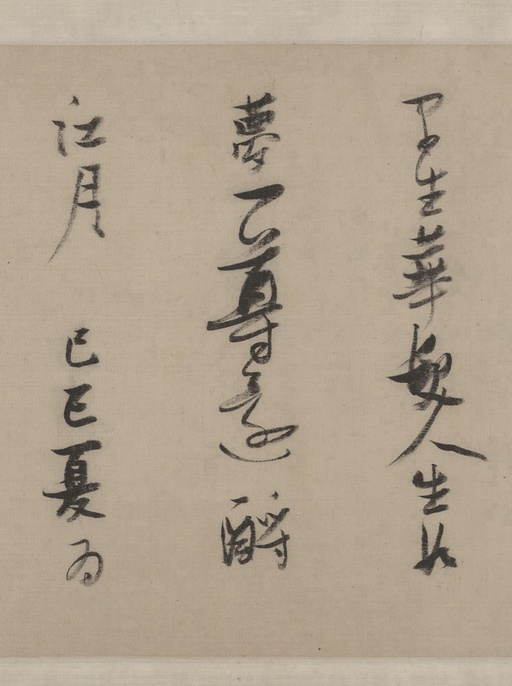 早生華髮人生如
夢一尊還酹
江月 己巳夏為